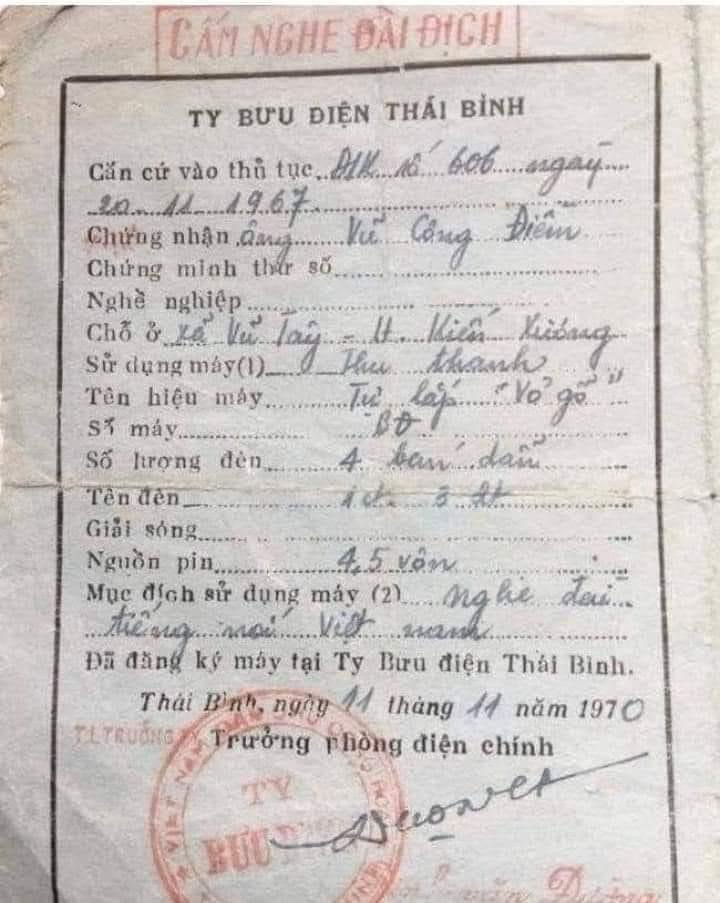 CẤM NGHE ĐÀI ĐỊCH
TY BƯU ĐIỆN THÁI BÌNH
Căn cứ vào thủ tục ĐK số 606 ngày
20.11.1967
Chứng nhận ông Vũ Công Điễn
Chứng minh thư số
Nghề nghiệp
Chỗ ở xã Vũ Tây - H. Kiến Xương
Sử dụng máy(1) Thu thanh
Tên hiệu máy Tự lắp "Vỏ gỗ"
Số máy
Số lượng đèn 4 bán dẫn
Tên đèn
Giải sóng
Nguồn pin 4,5 vôn
Mục đích sử dụng máy (2) nghe đài
tiếng nói Việt nam
Đã đăng ký máy tại Ty Bưu điện Thái Bình.
Thái Bình, ngày 11 tháng 11 năm 1970
T.L TRƯỞNG TY
Trưởng phòng điện chính
VIỆT NAM DÂN CHỦ CỘNG HÒA
TY
BƯU ĐIỆN